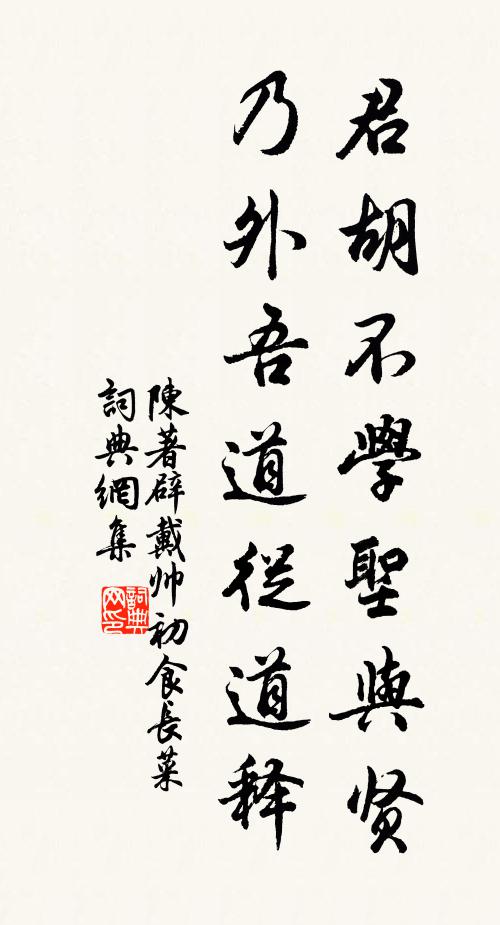 君胡不學聖與贤
乃外吾道従道释
陳著辟戴帅初食長菜
詞典網集
詞典网印